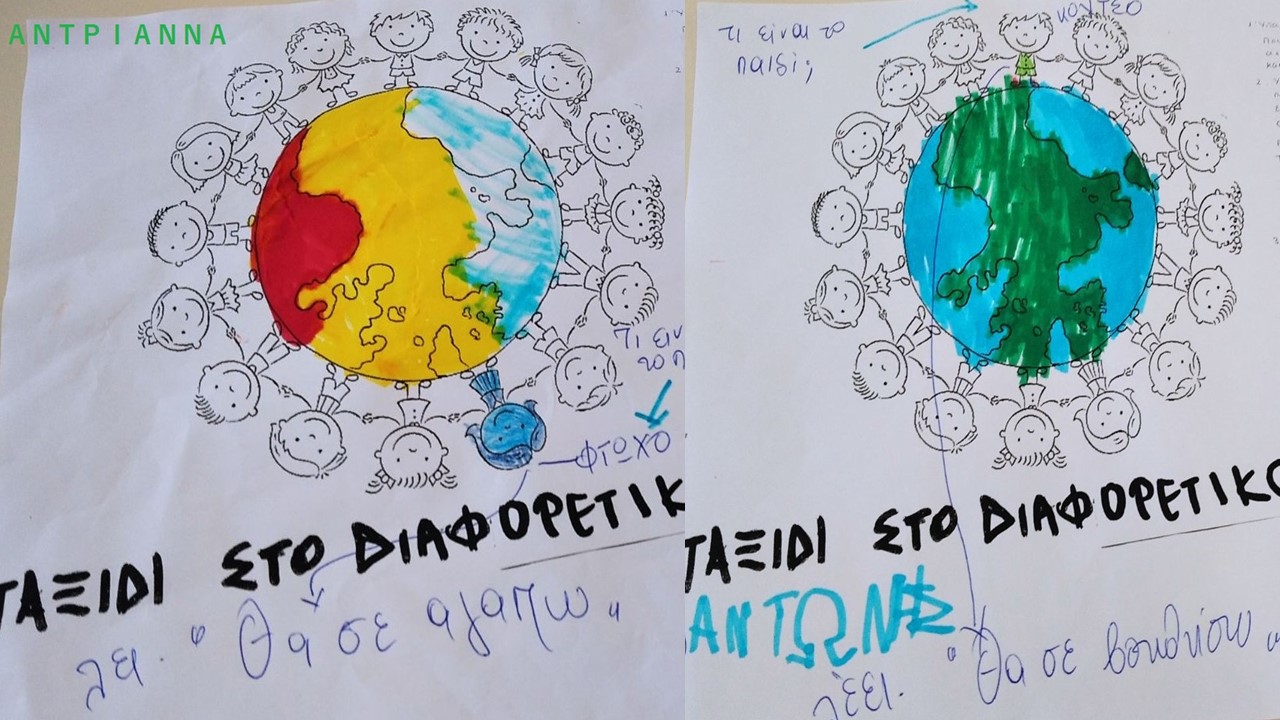 ΑΝΤΡΙΑΝΝΑ
Τι ειν
το π
ΦΤΩΧΟ
ΤΑΞΙΔΙ ΣΤΟ ΔΙΑΦΟΡΕΤΙΚ
λει. "Θα σε αγαπω"
Τι είναι το
παιδί;
ΚΟΝΤΕΟ
ΤΑΞΙΔΙ ΣΤΟ ΔΙΑΦΟΡΕΤΙΚΟ
ΑΝΤΩΝΗΣ
λέει. "Θα σε βοηθήσω"